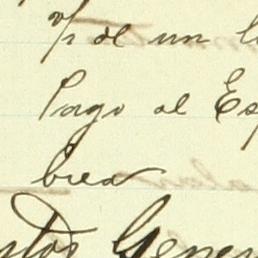 de un
Pago al Es
brea
tos Gener